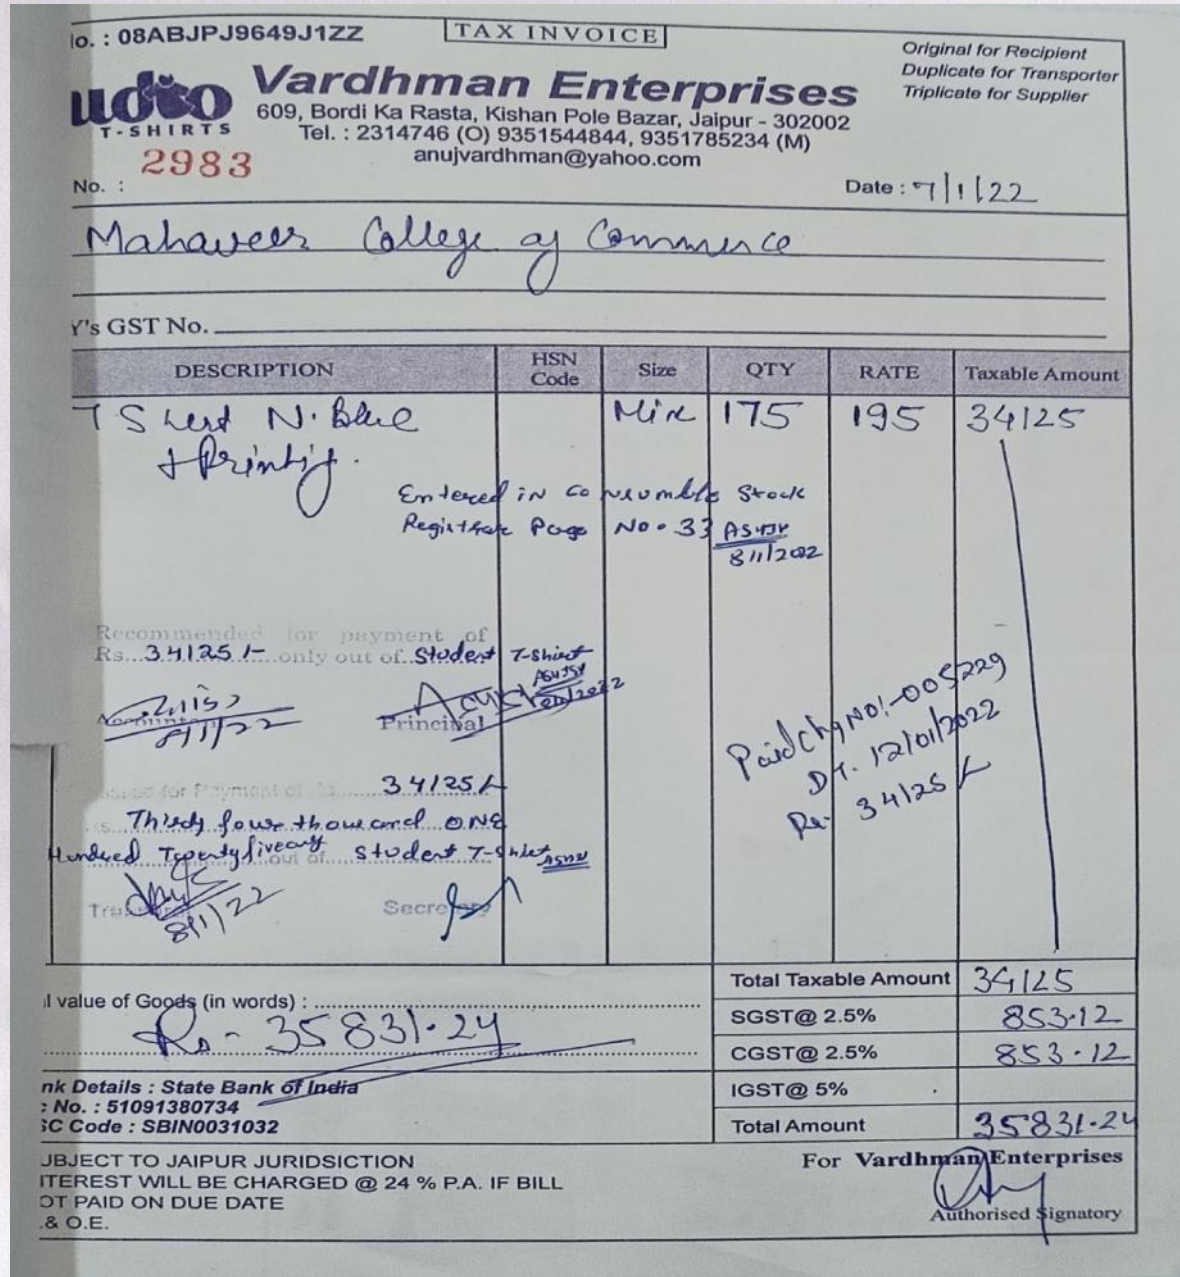 No. : 08ABJPJ9649J1ZZ
TAX INVOICE
Original for Recipient
Duplicate for Transporter
Triplicate for Supplier
udto
T-SHIRTS
Vardhman Enterprises
609, Bordi Ka Rasta, Kishan Pole Bazar, Jaipur - 302002
Tel. : 2314746 (O) 9351544844, 9351785234 (M)
anujvardhman@yahoo.com
2983
No. :
Date : 7/1/22
Mahaveer College of Commerce
Y's GST No.
DESCRIPTION HSN Code Size QTY RATE Taxable Amount
T Shert N. Blue Mix 175 195 34125
+ Printig.
Entered in Consumble Stock
Page No. 33
8/1/2022
Recommended for payment of
Rs. 34125/- only out of Student T-Shirt
8/1/22
Accountant Principal
Paid Chq No:- 005229
Dt. 12/01/2022
Rs- 34125/-
for Payment of Rs. 34125/-
Thirdy four thousand ONE
Hundred out of Student T-Shirt
8/1/22
Treasurer Secretary
Total Taxable Amount 34125
l value of Goods (in words) :
Rs - 35831.24
SGST@ 2.5% 853.12
CGST@ 2.5% 853.12
IGST@ 5%
Total Amount 35831.24
nk Details : State Bank of India
c No. : 51091380734
SC Code : SBIN0031032
UBJECT TO JAIPUR JURIDSICTION
ITEREST WILL BE CHARGED @ 24 % P.A. IF BILL
OT PAID ON DUE DATE
.& O.E.
For Vardhman Enterprises
Authorised Signatory